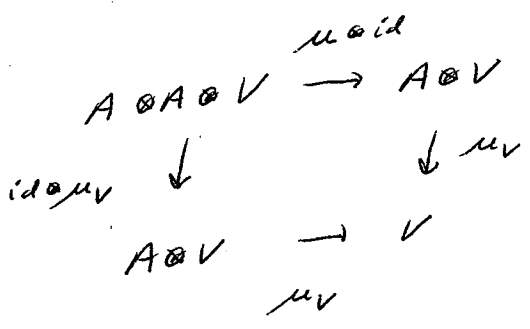 μ⊗id
A⊗A⊗V → A⊗V
id⊗μ_V ↓ ↓ μ_V
A⊗V → V
μ_V